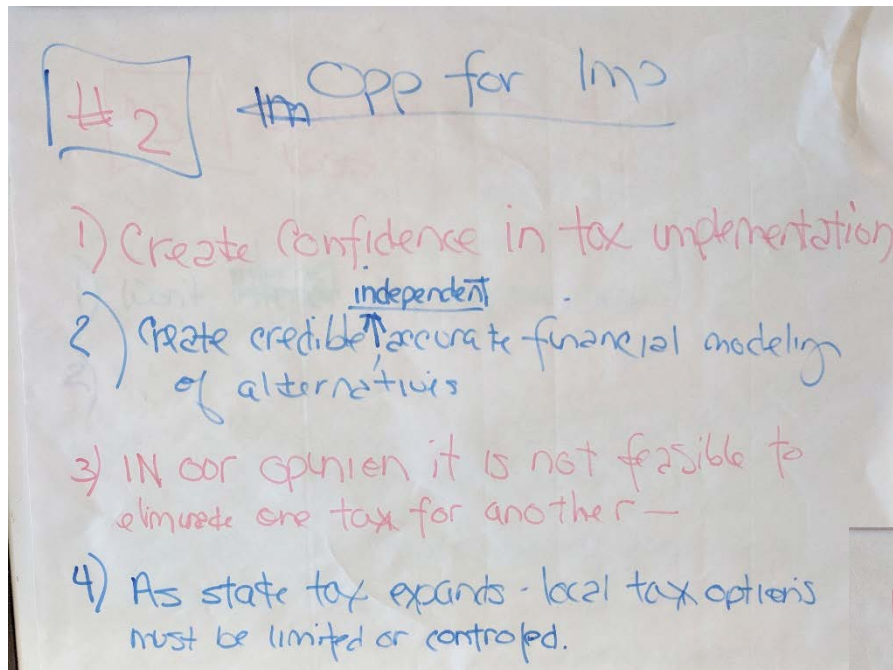 #2
Opp for Imp
1) Create Confidence in tax implementation
independent
2) Create credible ↑ accurate financial modeling
of alternativies
3) IN oor opinien it is not feasible to
elimunate one tax for another —
4) As state tax expands - local tax options
must be limited or controled.